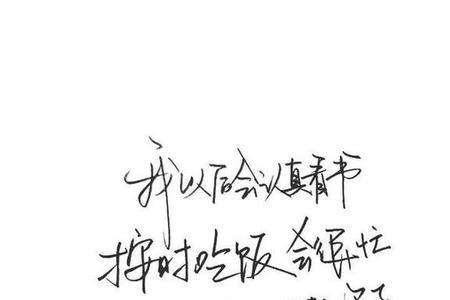 我以后会认真看书
按时吃饭 会很忙